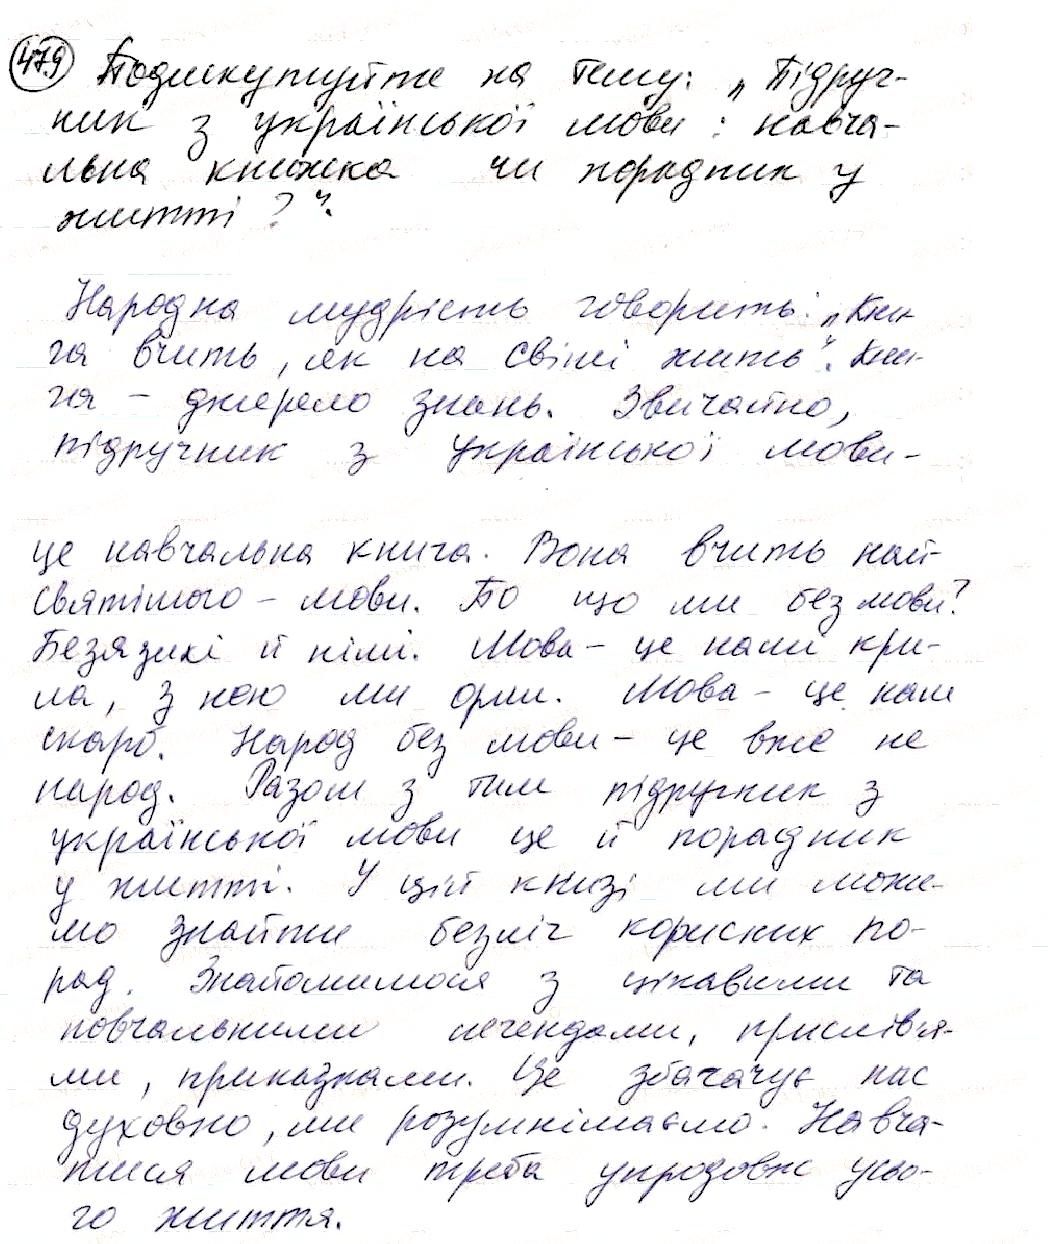 479 Подискутуйте на тему: „Підруч-
ник з української мови: навча-
льна книжка чи порадник у
житті?".
Народна мудрість говорить: „Кни-
га вчить, як на світі жить". Кни-
га - джерело знань. Звичайно,
підручник з української мови-
це навчальна книга. Вона вчить най-
святішого - мови. Бо що ми без мови?
Безязикі й німі. Мова - це наші кри-
ла, з нею ми орли. Мова - це наш
скарб. Народ без мови - це вже не
народ. Разом з тим підручник з
української мови це й порадник
у житті. У цій книзі ми може-
мо знайти безліч корисних по-
рад. Знайомимося з цікавими та
повчальними легендами, прислів'я-
ми, приказками. Це збагачує нас
духовно, ми розумнішаємо. Навча-
тися мови треба упродовж усьо-
го життя.